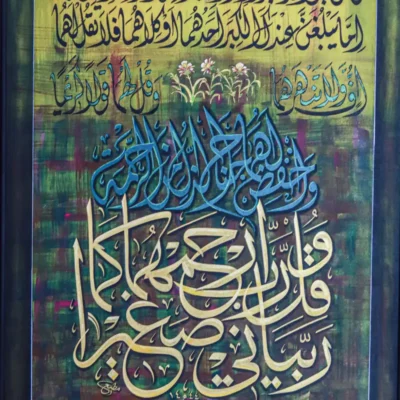 إما يبلغن عندك الكبر أحدهما أو كلاهما فلا تقل لهما
أف ولا تنهرهما وقل لهما قولا كريما
واخفض لهما جناح الذل من الرحمة
وقل رب ارحمهما كما
ربياني صغيرا